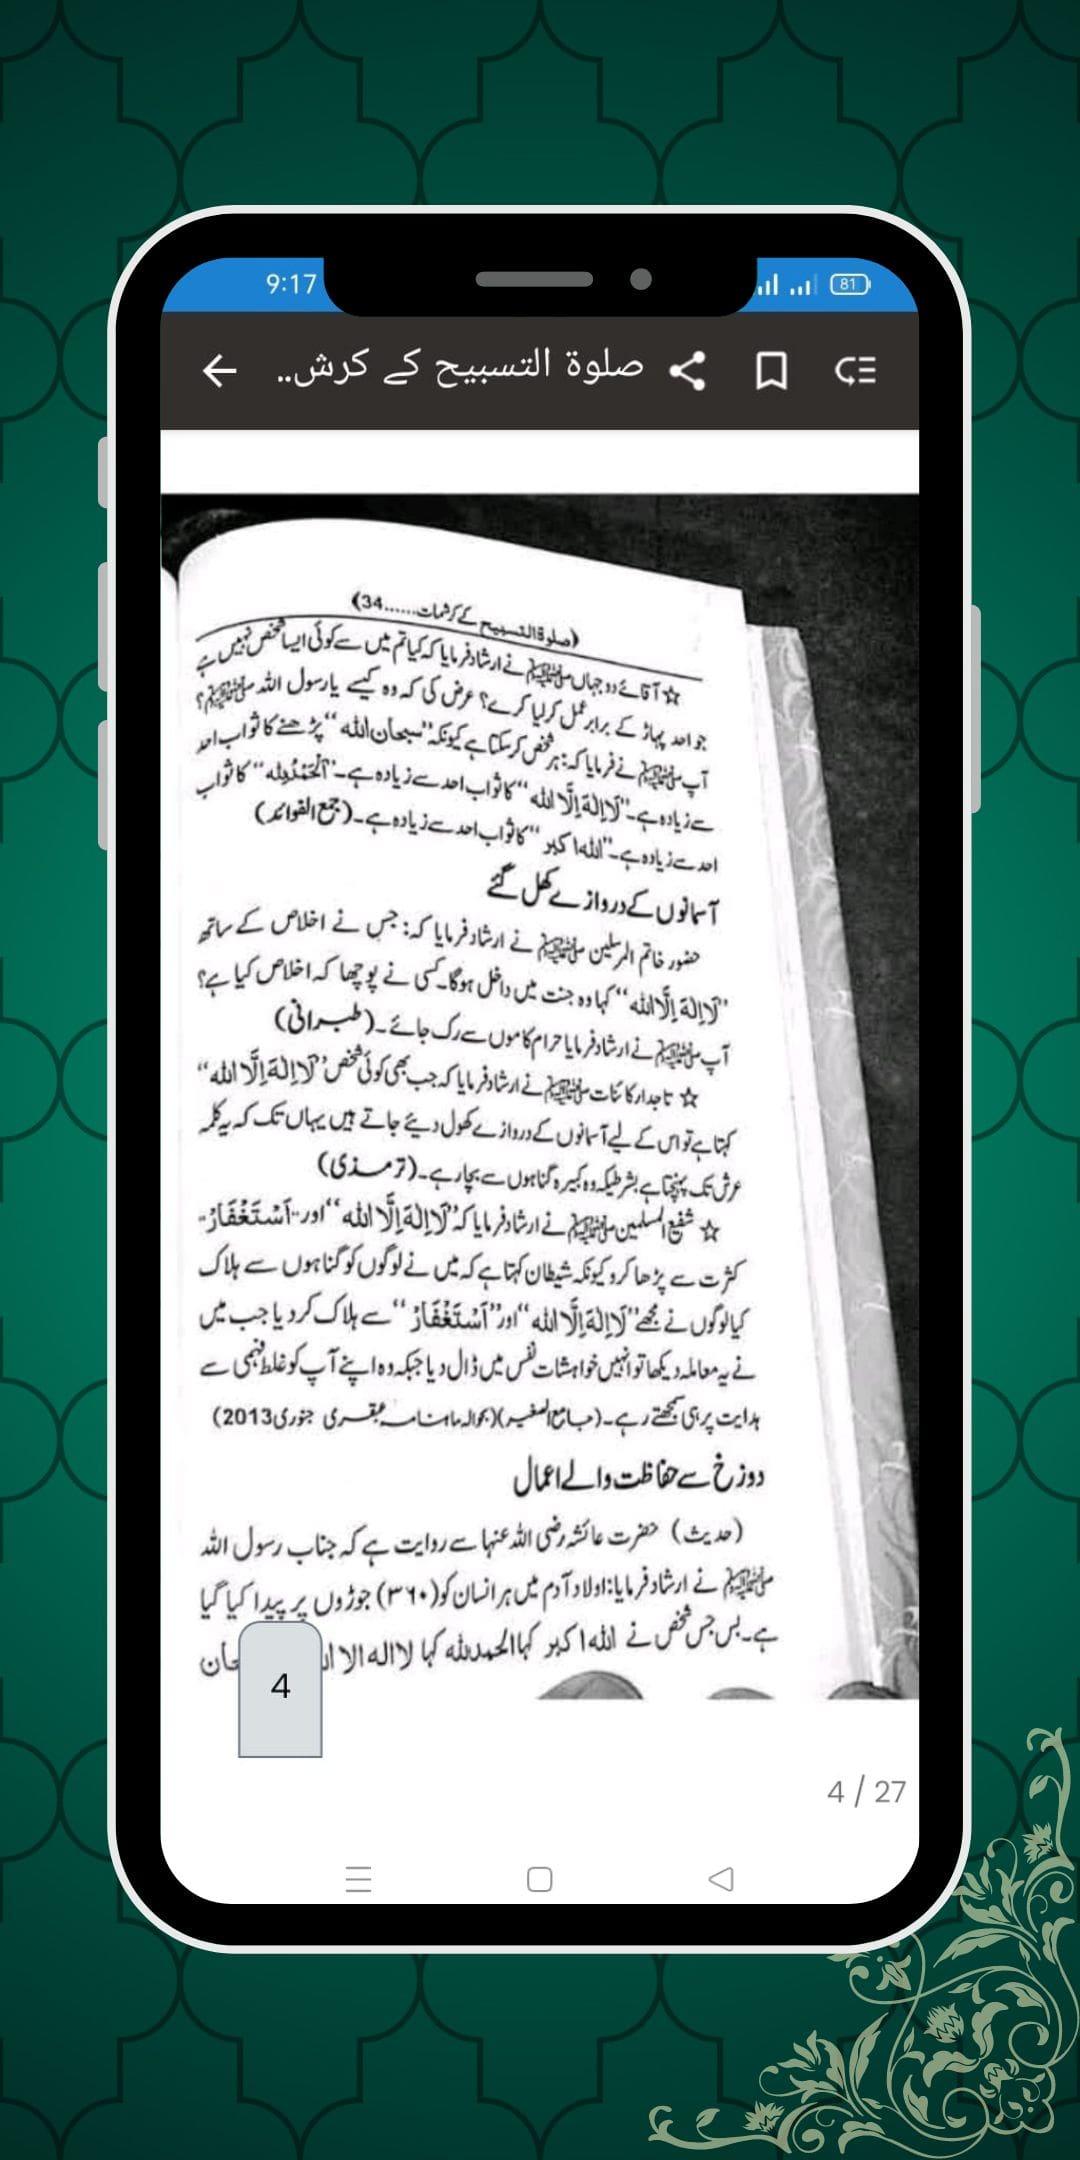 9:17
81
صلوة التسبيح کے کرش..
(صلوۃ التسبیح کے کرشمات......34)
☆ آقائے دو جہاں ﷺ نے ارشاد فرمایا کہ کیا تم میں سے کوئی ایسا شخص نہیں ہے
جو احد پہاڑ کے برابر عمل کر لیا کرے؟ عرض کی کہ وہ کیسے یا رسول اللہ ﷺ؟
آپ ﷺ نے فرمایا کہ: ہر شخص کر سکتا ہے کیونکہ "سبحان اللہ" پڑھنے کا ثواب احد
سے زیادہ ہے۔ "لَا اِلٰهَ اِلَّا الله" کا ثواب احد سے زیادہ ہے۔ "اَلْحَمْدُلِله" کا ثواب
احد سے زیادہ ہے۔ "اللہ اکبر" کا ثواب احد سے زیادہ ہے۔ (جمع الفوائد)
آسمانوں کے دروازے کھل گئے
حضور خاتم المرسلین ﷺ نے ارشاد فرمایا کہ: جس نے اخلاص کے ساتھ
"لَا اِلٰهَ اِلَّا الله" کہا وہ جنت میں داخل ہوگا۔ کسی نے پوچھا کہ اخلاص کیا ہے؟
آپ ﷺ نے ارشاد فرمایا حرام کاموں سے رک جائے۔ (طبرانی)
☆ تاجدار کائنات ﷺ نے ارشاد فرمایا کہ جب بھی کوئی شخص "لَا اِلٰهَ اِلَّا الله"
کہتا ہے تو اس کے لیے آسمانوں کے دروازے کھول دیئے جاتے ہیں یہاں تک کہ یہ کلمہ
عرش تک پہنچتا ہے بشرطیکہ وہ کبیرہ گناہوں سے بچا رہے۔ (ترمذی)
☆ شفیع المسلمین ﷺ نے ارشاد فرمایا کہ "لَا اِلٰهَ اِلَّا الله" اور "اَسْتَغْفَارْ"
کثرت سے پڑھا کرو کیونکہ شیطان کہتا ہے کہ میں نے لوگوں کو گناہوں سے ہلاک
کیا لوگوں نے مجھے "لَا اِلٰهَ اِلَّا الله" اور "اَسْتَغْفَارْ" سے ہلاک کر دیا جب میں
نے یہ معاملہ دیکھا تو انہیں خواہشات نفس میں ڈال دیا جبکہ وہ اپنے آپ کو غلط فہمی سے
ہدایت پر ہی سمجھتے رہے۔ (جامع الصغیر) (بحوالہ ماہنامہ عبقری جنوری 2013)
دوزخ سے حفاظت والے اعمال
(حدیث) حضرت عائشہ رضی اللہ عنہا سے روایت ہے کہ جناب رسول اللہ
ﷺ نے ارشاد فرمایا: اولاد آدم میں ہر انسان کو (۳۶۰) جوڑوں پر پیدا کیا گیا
ہے۔ بس جس شخص نے اللہ اکبر کہا الحمدللہ کہا لا الہ الا
4
4 / 27